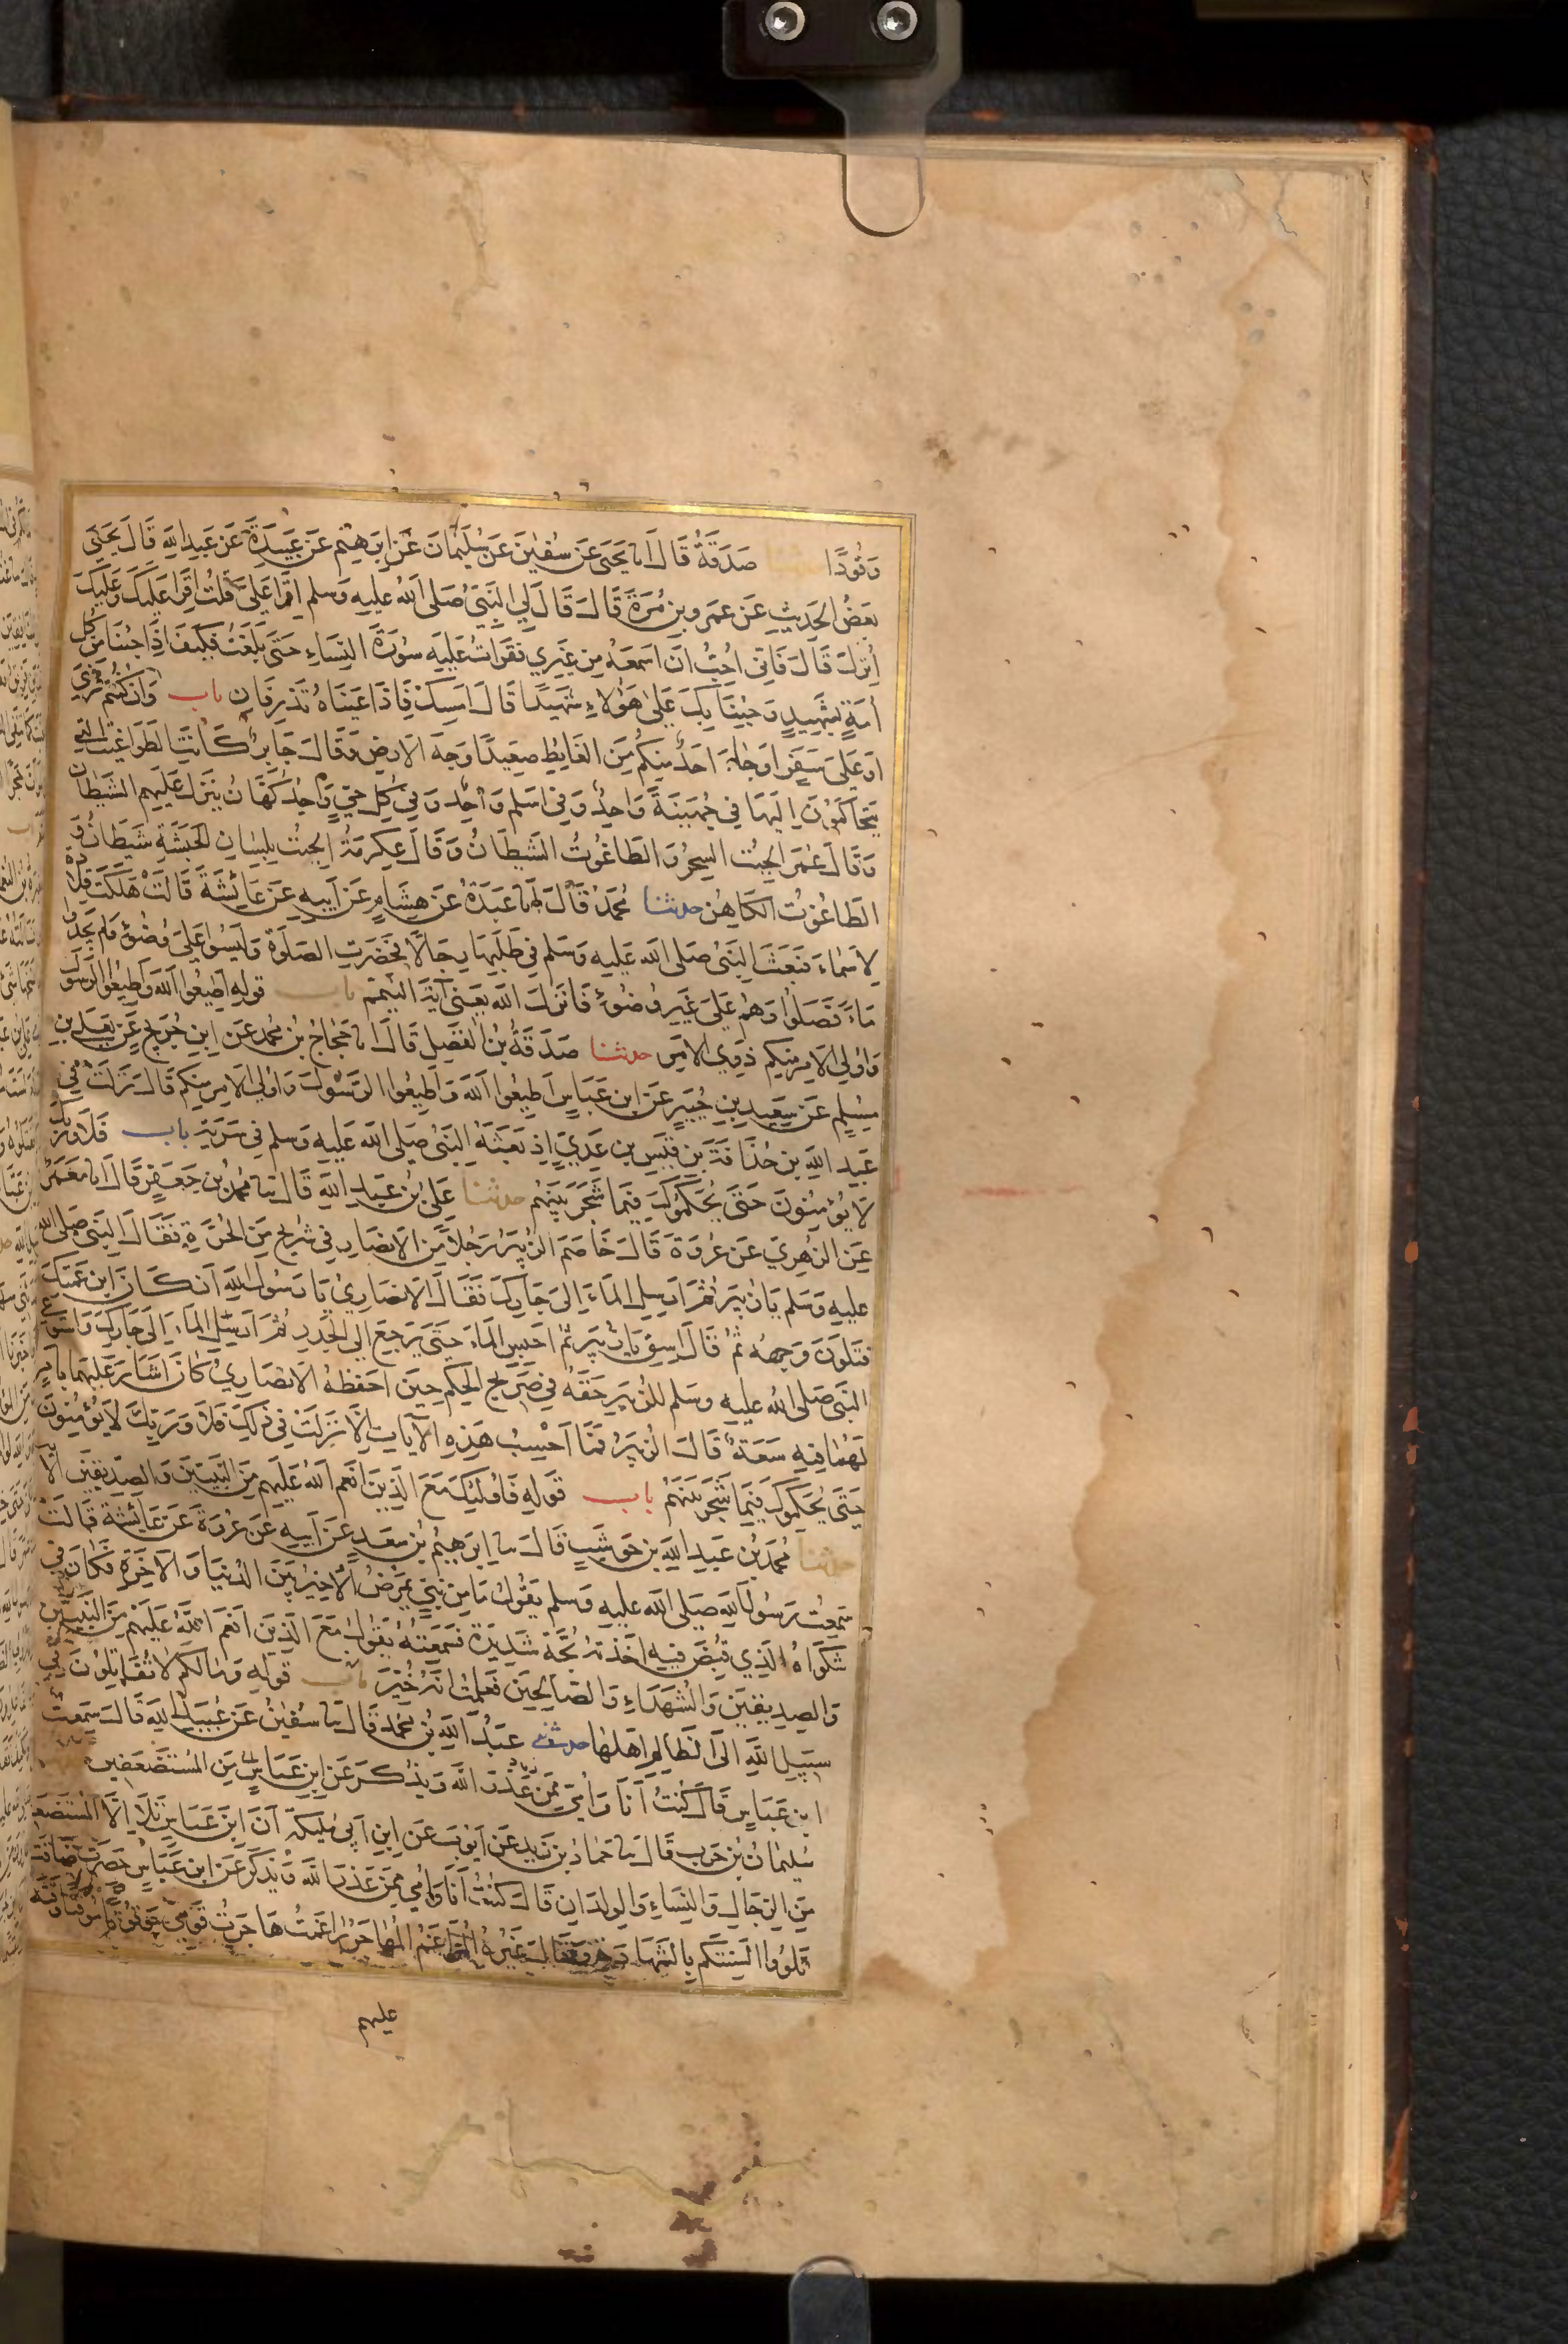 وَقُودًا صَدَقَةُ قَالَ انا يَحْيَى عَنْ سُفْيٰنَ عَنْ سُلَيْمَانَ عَنْ اِبرٰهِيْمَ عَنْ عَبِيْدَةَ عَنْ عَبْدِ اللهِ قَالَ يَحْيَى
بَعْضُ الحَدِيثِ عَنْ عَمْرِو بْنِ مُرَّةَ قَالَ قَالَ لِي النَّبِيُّ صَلَى اللهُ عليهِ وَسلم اِقْرَأ عَلَيَّ قُلْتُ اَقْرَأُ عَلَيْكَ وَعَلَيْكَ
اُنْزِلَ قَالَ فَاِنِّي اُحِبُّ اَنْ اَسْمَعَهُ مِنْ غَيْرِي فَقَرَأتُ عَلَيْهِ سُوْرَةَ النِّسَاءِ حَتَى بَلَغْتُ فَكَيْفَ اِذَا جِئْنَا مِنْ كُلِ
اُمَةٍ بِشَهِيدٍ وَجِئْنَا بِكَ عَلَى هٰؤُلاءِ شَهِيدًا قَالَ اَمْسِكْ فَاِذَا عَيْنَاهُ تَذْرِفَانِ باب وَاِنْ كُنْتُمْ مَرْضَى
اَوْ عَلَى سَفَرٍ اَوْ جَاءَ اَحَدٌ مِنْكُمْ مِنَ الغَايِطِ صَعِيدًا وَجْهَ الارْضِ وَقَالَ جَابِرٌ كَانَتِ الطَوَاغِيتُ التِي
يَتَحَاكَمُوْنَ اِلَيْهَا فِي جُهَيْنَةَ وَاحِدٌ وَفِي اَسْلَمَ وَاحِدٌ وَفِي كُلِ حَيٍّ وَاحِدٌ كُهَّانٌ يَنْزِلُ عَلَيْهِمُ الشَيْطَانُ
وَقَالَ عُمَرُ الجِبْتُ السِحْرُ وَالطَاغُوْتُ الشَيْطَانُ وَقَالَ عِكرِمَةُ الجِبْتُ بِلِسَانِ الحَبَشَةِ شَيْطَانٌ وَ
الطَاغُوْتُ الكَاهِنُ حدثنا مُحَمَّدٌ قَالَ انا عَبْدَةُ عَنْ هِشَامٍ عَنْ اَبِيهِ عَنْ عَائِشَةَ قَالَتْ هَلَكَتْ قِلاَدَةٌ
لاَسْمَاءَ فَبَعَثَ النَبِيُّ صَلَى الله عَلَيهِ وَسَلم فِي طَلَبِهَا رِجَالًا فَحَضَرَتِ الصَلوٰةُ وَلَيْسُوا عَلَى وُضُوْءٍ وَلَمْ يَجِدُوا
مَاءً فَصَلَّوْا وَهُمْ عَلَى غَيْرِ وُضُوْءٍ فَاَنْزَلَ اللهُ يَعْنِي آيَةَ التَّيَمُّمِ باب قولِهِ اَطِيعُوا اللهَ وَاَطِيعُوا الرَسُوْلَ
وَاُولِي الاَمْرِ مِنْكُمْ ذَوِي الاَمْرِ حدثنا صَدَقَةُ بْنُ الفَضْلِ قَالَ انا حَجَّاجُ بْنُ مُحَمَدٍ عَنِ ابْنِ جُرَيْجٍ عَنْ يَعْلَى بْنِ
مُسْلِمٍ عَنْ سَعِيدِ بْنِ جُبَيْرٍ عَنْ ابْنِ عَبَّاسٍ اَطِيعُوا اللهَ وَاَطِيعُوا الرَّسُوْلَ وَاُولِي الاَمْرِ مِنْكُمْ قَالَ نَزَلَتْ فِي
عَبْدِ اللهِ بْنِ حُذَافَةَ بْنِ قَيْسِ بْنِ عَدِيٍّ اِذْ بَعَثَهُ النَبِيُّ صَلى اللهُ عَلَيهِ وَسلم فِي سَرِيَّةٍ باب فَلَا وَرَبِّكَ
لَا يُؤْمِنُوْنَ حَتَى يُحَكِّمُوْكَ فِيْمَا شَجَرَ بَيْنَهُمْ حدثنا عَلِيُّ بْنُ عَبْدِ اللهِ قَالَ ثنا مُحَمَّدُ بْنُ جَعْفَرٍ قَالَ انا مَعْمَرٌ
عَنِ الزُهْرِيِّ عَنْ عُرْوَةَ قَالَ خَاصَمَ الزُّبَيْرُ رَجُلًا مِنَ الاَنْصَارِ فِي شَرِيجٍ مِنَ الحَرَّةِ فَقَالَ النَّبِيُّ صَلى الله
عَليهِ وَسَلم يَا زُبَيْرُ ثُمَّ اَرْسِلِ المَاءَ اِلَى جَارِكَ فَقَالَ الاَنْصَارِيُّ يَا رَسُوْلَ اللهِ اَنْ كَانَ ابْنَ عَمَّتِكَ
فَتَلَوَّنَ وَجْهُهُ ثُمَّ قَالَ اِسْقِ يَا زُبَيْرُ ثُمَّ احْبِسِ المَاءَ حَتَى يَرْجِعَ اِلَى الجَدْرِ ثُمَّ اَرْسِلِ المَاءَ اِلَى جَارِكَ وَاسْتَوْعَى
النَّبِيُّ صَلى اللهُ عَليهِ وَسلم للزُّبَيْرِ حَقَّهُ فِي صَرِيْحِ الحُكْمِ حِيْنَ اَحْفَظَهُ الاَنْصَارِيُّ كَانَ اَشَارَ عَلَيْهِمَا بِاَمْرٍ
لَهُمَا فِيهِ سَعَةٌ قَالَ الزُّبَيْرُ فَمَا اَحْسِبُ هَذِهِ الآيَاتِ اِلَّا نَزَلَتْ فِي ذَلِكَ فَلَا وَرَبِّكَ لاَ يُؤْمِنُوْنَ
حَتَى يُحَكِّمُوْكَ فِيْمَا شَجَرَ بَيْنَهُمْ باب قَوْلِهِ فَاُولٰئِكَ مَعَ الَّذِيْنَ اَنْعَمَ اللهُ عَلَيْهِمْ مِنَ النَّبِيِّيْنَ وَالصِدِّيْقِيْنَ
حدثنا مُحَمَّدُ بْنُ عَبْدِ اللهِ بْنِ حَوْشَبٍ قَالَ ثنا اِبْرٰهِيْمُ بْنُ سَعْدٍ عَنْ اَبِيهِ عَنْ عُرْوَةَ عَنْ عَائِشَةَ قَالَتْ
سَمِعْتُ رَسُوْلَ اللهِ صَلى الله عَليهِ وَسلم يَقُوْلُ مَا مِنْ نَبِيٍّ يَمْرَضُ اِلَّا خُيِّرَ بَيْنَ الدُنْيَا وَالآخِرَةِ فَكَانَ فِي
شَكْوَاهُ الَّذِي قُبِضَ فِيهِ اَخَذَتْهُ بُحَّةٌ شَدِيْدَةٌ فَسَمِعْتُهُ يَقُوْلُ مَعَ الَّذِيْنَ اَنْعَمَ اللهُ عَلَيْهِمْ مِنَ النَّبِيِّيْنَ
وَالصِدِيقِيْنَ وَالشُهَدَاءِ وَالصَالِحِيْنَ فَعَلِمْتُ اَنَّهُ خُيِّرَ باب قَولِهِ وَمَا لَكُمْ لَا تُقَاتِلُونَ فِي
سَبِيلِ اللهِ اِلَى الظَالِمِ اَهْلُهَا حدثني عَبْدُ اللهِ بْنُ مُحَمَّدٍ قَالَ ثنا سُفْيٰنُ عَنْ عُبَيْدِ اللهِ قَالَ سَمِعْتُ
ابْنَ عَبَاسٍ قَالَ كُنْتُ اَنَا وَاُمِّي مِمَّنْ عَذَرَ اللهُ وَيُذْكَرُ عَنِ ابْنِ عَبَّاسٍ مِنَ المُسْتَضْعَفِيْنَ
سُلَيْمَانُ بْنُ حَرْبٍ قَالَ ثنا حَمَّادُ بْنُ زَيْدٍ عَنْ اَيُّوْبَ عَنِ ابْنِ اَبِي مُلَيْكَةَ اَنَّ ابْنَ عَبَّاسٍ تَلَا اِلَّا المُسْتَضْعَفِيْنَ
مِنَ الرِّجَالِ وَالنِّسَاءِ وَالوِلْدَانِ قَالَ كُنْتُ اَنَا وَاُمِّي مِمَّنْ عَذَرَ اللهُ وَيُذْكَرُ عَنِ ابْنِ عَبَّاسٍ حَصِرَتْ ضَاقَتْ
تَلْوُوا اَلْسِنَتَكُمْ بِالشَهَادَةِ وَقَالَ غَيْرُهُ المُرَاغَمُ المُهَاجَرُ رَاغَمْتُ هَاجَرْتُ قَوْمِي مَوْقُوْتًا
عليهم